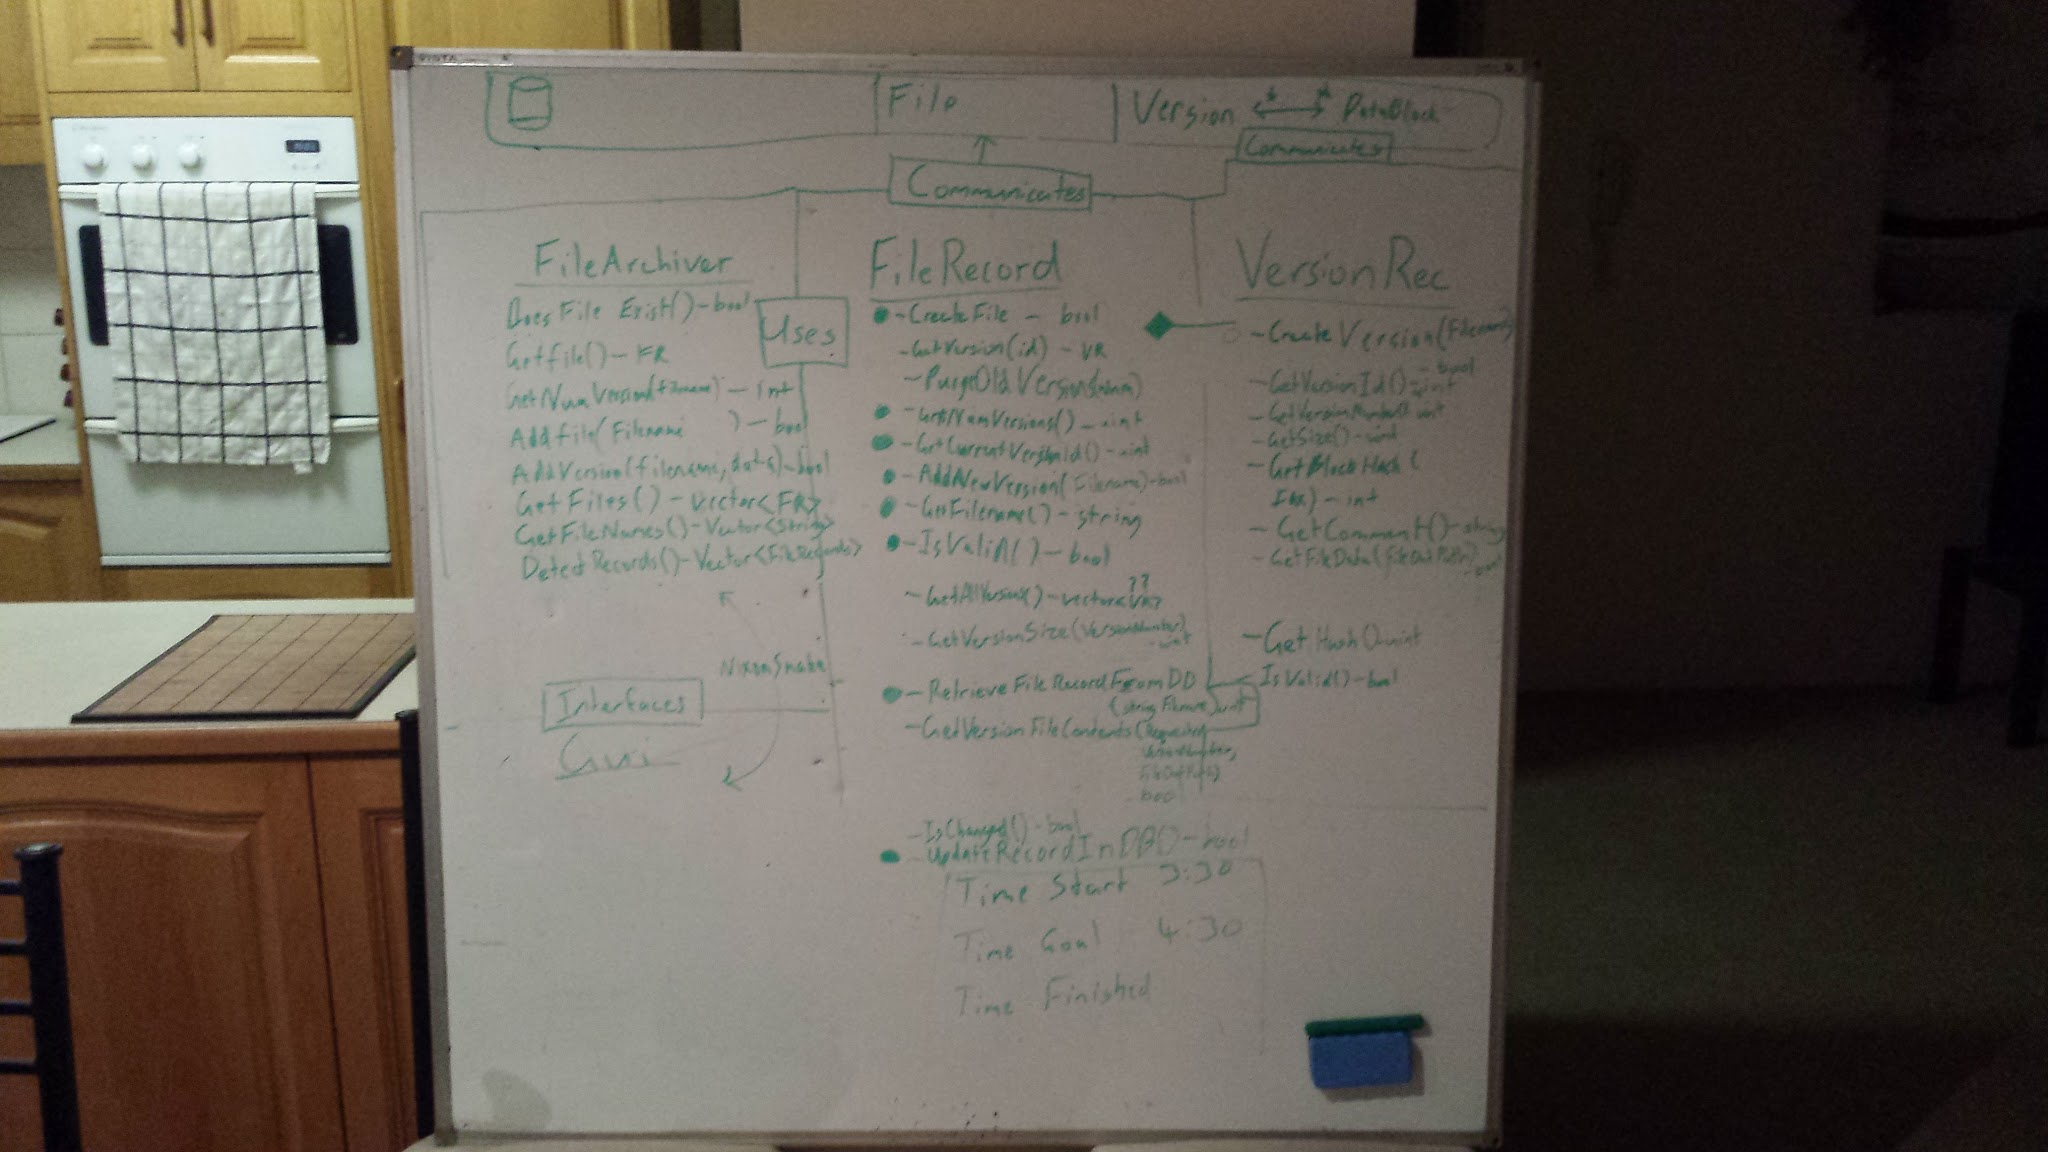 File
Version
DataBlock
Communicates
Communicates
FileArchiver
DoesFile Exist() - bool
Getfile() - FR
GetNumVersion(filename) - int
Addfile(Filename ) - bool
AddVersion(filename, data) - bool
GetFiles() - vector<FR>
GetFileNames() - Vector<String>
DetectRecords() - Vector<FileRecords>
Uses
NixonSnake
Interfaces
Gui
FileRecord
- CreateFile - bool
- GetVersion(id) - VR
- PurgeOldVersions(num)
- GetNumVersions() - uint
- GetCurrentVersionId() - uint
- AddNewVersion(Filename) - bool
- GetFilename() - string
- IsValid() - bool
??
- GetAllVersions() - vector<VR>
- GetVersionSize(VersionNumber)
- uint
- RetrieveFileRecordFromDD
(string Filename)
- GetVersionFileContents(Requested
VersionNumber,
FileOutPath)
bool
- IsChanged() - bool
- UpdateRecordInDB() - bool
Time Start 3:30
Time Goal 4:30
Time Finished
VersionRec
- CreateVersion(Filename)
- bool
- GetVersionId() - int
- GetVersionNumber() uint
- GetSize() - uint
- GetBlockHash(
) - int
- GetComment() - string
- GetFileData(fileOutPath)
- GetHash() uint
IsValid() - bool